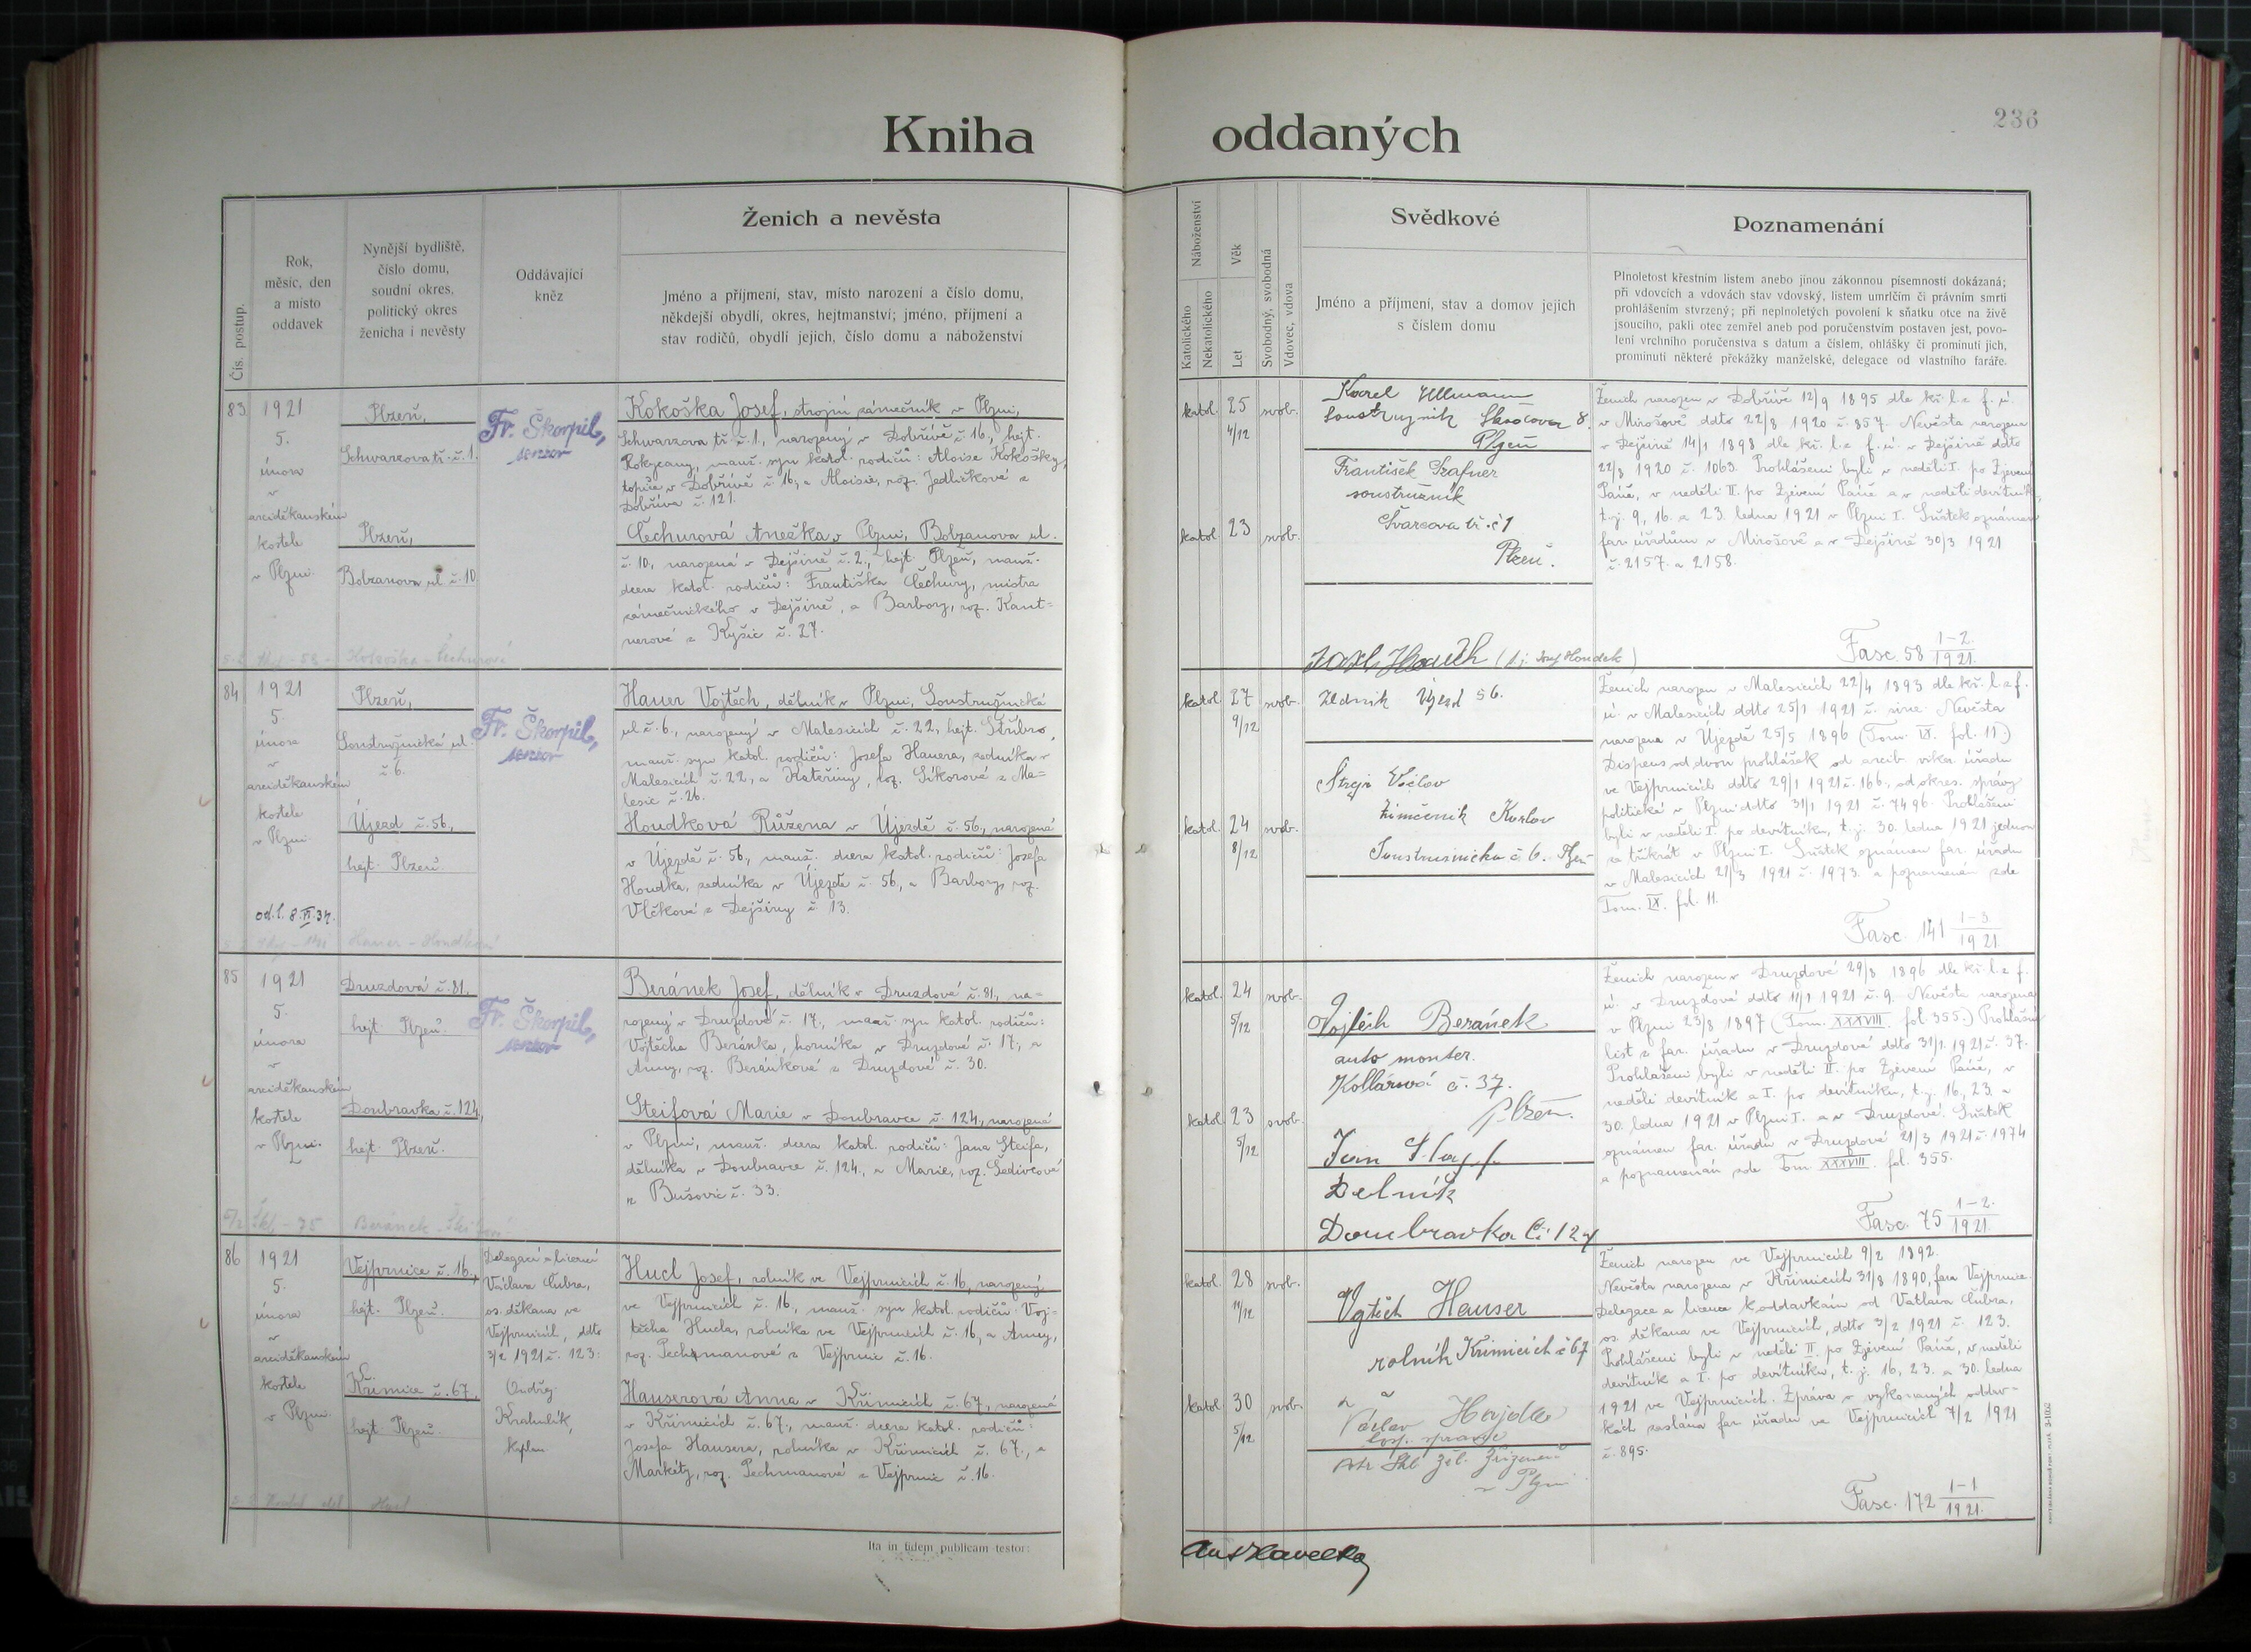 Kniha oddaných
236
Čís. postup.
Rok,
měsíc, den
a místo
oddavek
Nynější bydliště,
číslo domu,
soudní okres,
politický okres
ženicha i nevěsty
Oddávající
kněz
Ženich a nevěsta
Jméno a příjmení, stav, místo narození a číslo domu,
někdejší obydlí, okres, hejtmanství; jméno, příjmení a
stav rodičů, obydlí jejich, číslo domu a náboženství
Náboženství
Katolického
Nekatolického
Věk
Let
Svobodný, svobodná
Vdovec, vdova
Svědkové
Jméno a příjmení, stav a domov jejich
s číslem domu
Poznamenání
Plnoletost křestním listem anebo jinou zákonnou písemností dokázaná;
při vdovcích a vdovách stav vdovský, listem umrlčím či právním smrti
prohlášením stvrzený; při neplnoletých povolení k sňatku otce na živě
jsoucího, pakli otec zemřel aneb pod poručenstvím postaven jest, povo-
lení vrchního poručenstva s datum a číslem, ohlášky či prominutí jich,
prominutí některé překážky manželské, delegace od vlastního faráře.
83
1921
5.
února
v
arciděkanském
kostele
v Plzni.
Plzeň,
Schwarzova tř. č. 1.
Plzeň,
Bolzanova ul. č. 10.
Fr. Škorpil,
senior
Kokoška Josef, strojní zámečník v Plzni,
Schwarzova tř. č. 1, narozený v Dobřívě č. 16, hejt.
Rokycany, manž. syn katol. rodičů: Aloise Kokošky,
topiče v Dobřívě č. 16, a Aloisie, roz. Jedličkové z
Dobříva č. 121.
Čechurová Anežka v Plzni, Bolzanova ul.
č. 10, narozená v Dejšině č. 2., hejt. Plzeň, manž.
dcera katol. rodičů: Františka Čechury, mistra
zámečnického v Dejšině, a Barbory, roz. Kant-
nerové z Kyšic č. 27.
katol. 25 4/12 svob.
katol. 23 svob.
Karel Ullmann
soustružník Skocova 8.
Plzeň
František Grafner
soustružník
Švarcova tř. č 1
Plzeň.
Ženich narozen v Dobřívě 12/9 1895 dle kř. l. z f. ú.
v Mirošově ddto 22/8 1920 č. 857. Nevěsta narozena
v Dejšině 14/1 1898 dle kř. l. z f. ú. v Dejšině ddto
22/8 1920 č. 1063. Prohlášeni byli v neděli I. po Zjevení
Páně, v neděli II. po Zjevení Páně a v neděli devítník,
t. j. 9, 16. a 23. ledna 1921 v Plzni I. Sňatek oznámen
far. úřadům v Mirošově a v Dejšině 30/3 1921
č. 2157. a 2158.
Fasc. 58 1-2./1921.
84
1921
5.
února
v
arciděkanském
kostele
v Plzni.
Plzeň,
Soustružnická ul.
č 6.
Újezd č. 56.,
hejt. Plzeň.
Fr. Škorpil,
senior
Hauer Vojtěch, dělník v Plzni, Soustružnická
ul. č. 6., narozený v Malesicích č. 22, hejt. Stříbro,
manž. syn katol. rodičů: Josefa Hauera, zedníka v
Malesicích č. 22, a Kateřiny, roz. Síkorové z Ma-
lesic č. 26.
Houdková Růžena v Újezdě č. 56., narozená
v Újezdě č. 56, manž. dcera katol. rodičů: Josefa
Houdka, zedníka v Újezdě č. 56, a Barbory, roz.
Vlčkové z Dejšiny č. 13.
katol. 27 9/12 svob.
katol. 24 8/12 svob.
(t. j. Josef Houdek)
Zedník Újezd 56.
Václav
Soustružnicka č. 6. Plzeň
Ženich narozen v Malesicích 22/4 1893 dle kř. l. z f.
ú. v Malesicích ddto 25/1 1921 č. sine. Nevěsta
narozena v Újezdě 25/5 1896 (Tom. IX. fol. 11.)
Dispens od dvou prohlášek od arcib. vikar. úřadu
ve Vejprnicích ddto 29/1 1921 č. 166, od okres. správy
politické v Plzni ddto 31/1 1921 č. 7496. Prohlášeni
byli v neděli I. po devítníku, t. j. 30. ledna 1921 jednou
za třikrát v Plzni I. Sňatek oznámen far. úřadu
v Malesicích 21/3 1921 č. 1973. a poznamenán zde
Tom. IX. fol. 11.
Fasc. 141 1-3/1921
85
1921
5.
února
v
arciděkanském
kostele
v Plzni.
Druzdová č. 81.,
hejt. Plzeň.
Doubravka č. 124,
hejt. Plzeň.
Fr. Škorpil,
senior
Beránek Josef, dělník v Druzdové č. 81, na-
rozený v Druzdové č. 17., manž. syn katol. rodičů:
Vojtěcha Beránka, horníka v Druzdové č. 17., a
Anny, roz. Beránkové z Druzdové č. 30.
Steifová Marie v Doubravce č. 124, narozená
v Plzni, manž. dcera katol. rodičů: Jana Steifa,
dělníka v Doubravce č. 124., a Marie, roz. Šedivcové
z Bušovic č. 33.
katol. 24 5/12 svob.
katol. 23 5/12 svob.
Vojtěch Beránek
auto monter.
Kollárová č. 37.
Plzen.
Delník
Doubravka Či 124
Ženich narozen v Druzdové 29/8 1896 dle kř. l. z f.
ú. v Druzdové ddto 11/1 1921 č. 9. Nevěsta narozena
v Plzni 23/8 1897 (Tom. XXXVIII. fol. 355.) Prohlašní
list z far. úřadu v Druzdové ddto 31/1. 1921 č. 37.
Prohlášeni byli v neděli II. po Zjevení Páně, v
neděli devítník a I. po devítníku, t. j. 16, 23. a
30. ledna 1921 v Plzni I. a v Druzdové. Sňatek
oznámen far. úřadu v Druzdové 21/3 1921 č. 1974
a poznamenán zde Tom XXXVIII. fol. 355.
Fasc. 75 1-2./1921.
86
1921
5.
února
v
arciděkanském
kostele
v Plzni.
Vejprnice č. 16.,
hejt. Plzeň.
Křimice č. 67.,
hejt. Plzeň.
Delegací a licencí
Václava Cubra,
os. děkana ve
Vejprnicích, ddto
3/2 1921 č. 123:
Ondřej
kaplan
Hucl Josef, rolník ve Vejprnicích č. 16, narozený
ve Vejprnicích č. 16, manž. syn katol. rodičů: Voj-
těcha Hucla, rolníka ve Vejprnicích č. 16, a Anny,
roz. Pechmanové z Vejprnic č. 16.
Hauserová Anna v Křimicích č. 67, narozená
v Křimicích č. 67., manž. dcera katol. rodičů:
Josefa Hausera, rolníka v Křimicích č. 67., a
Markéty, roz. Pechmanové z Vejprnic č. 16.
katol. 28 11/12 svob.
katol. 30 5/12 svob.
Vojtěch Hauser
rolník Křimicích č 67
Václav
v Plzni
Ženich narozen ve Vejprnicích 9/2 1892.
Nevěsta narozena v Křimicích 31/8 1890, fara Vejprnice.
Delegace a licence k oddavkám od Vatlava Cubra,
os. děkana ve Vejprnicích, ddto 3/2 1921 č. 123.
Prohlášeni byli v neděli II. po Zjevení Páně, v neděli
devítník a I. po devítníku, t. j. 16, 23. a 30. ledna
1921 ve Vejprnicích. Zpráva o vykonaných oddav-
kách zaslána far. úřadu ve Vejprnicích 7/2 1921
č. 895.
Fasc. 172 1-1/1921.
Ita in fidem publicam testor:
Ant Havelka